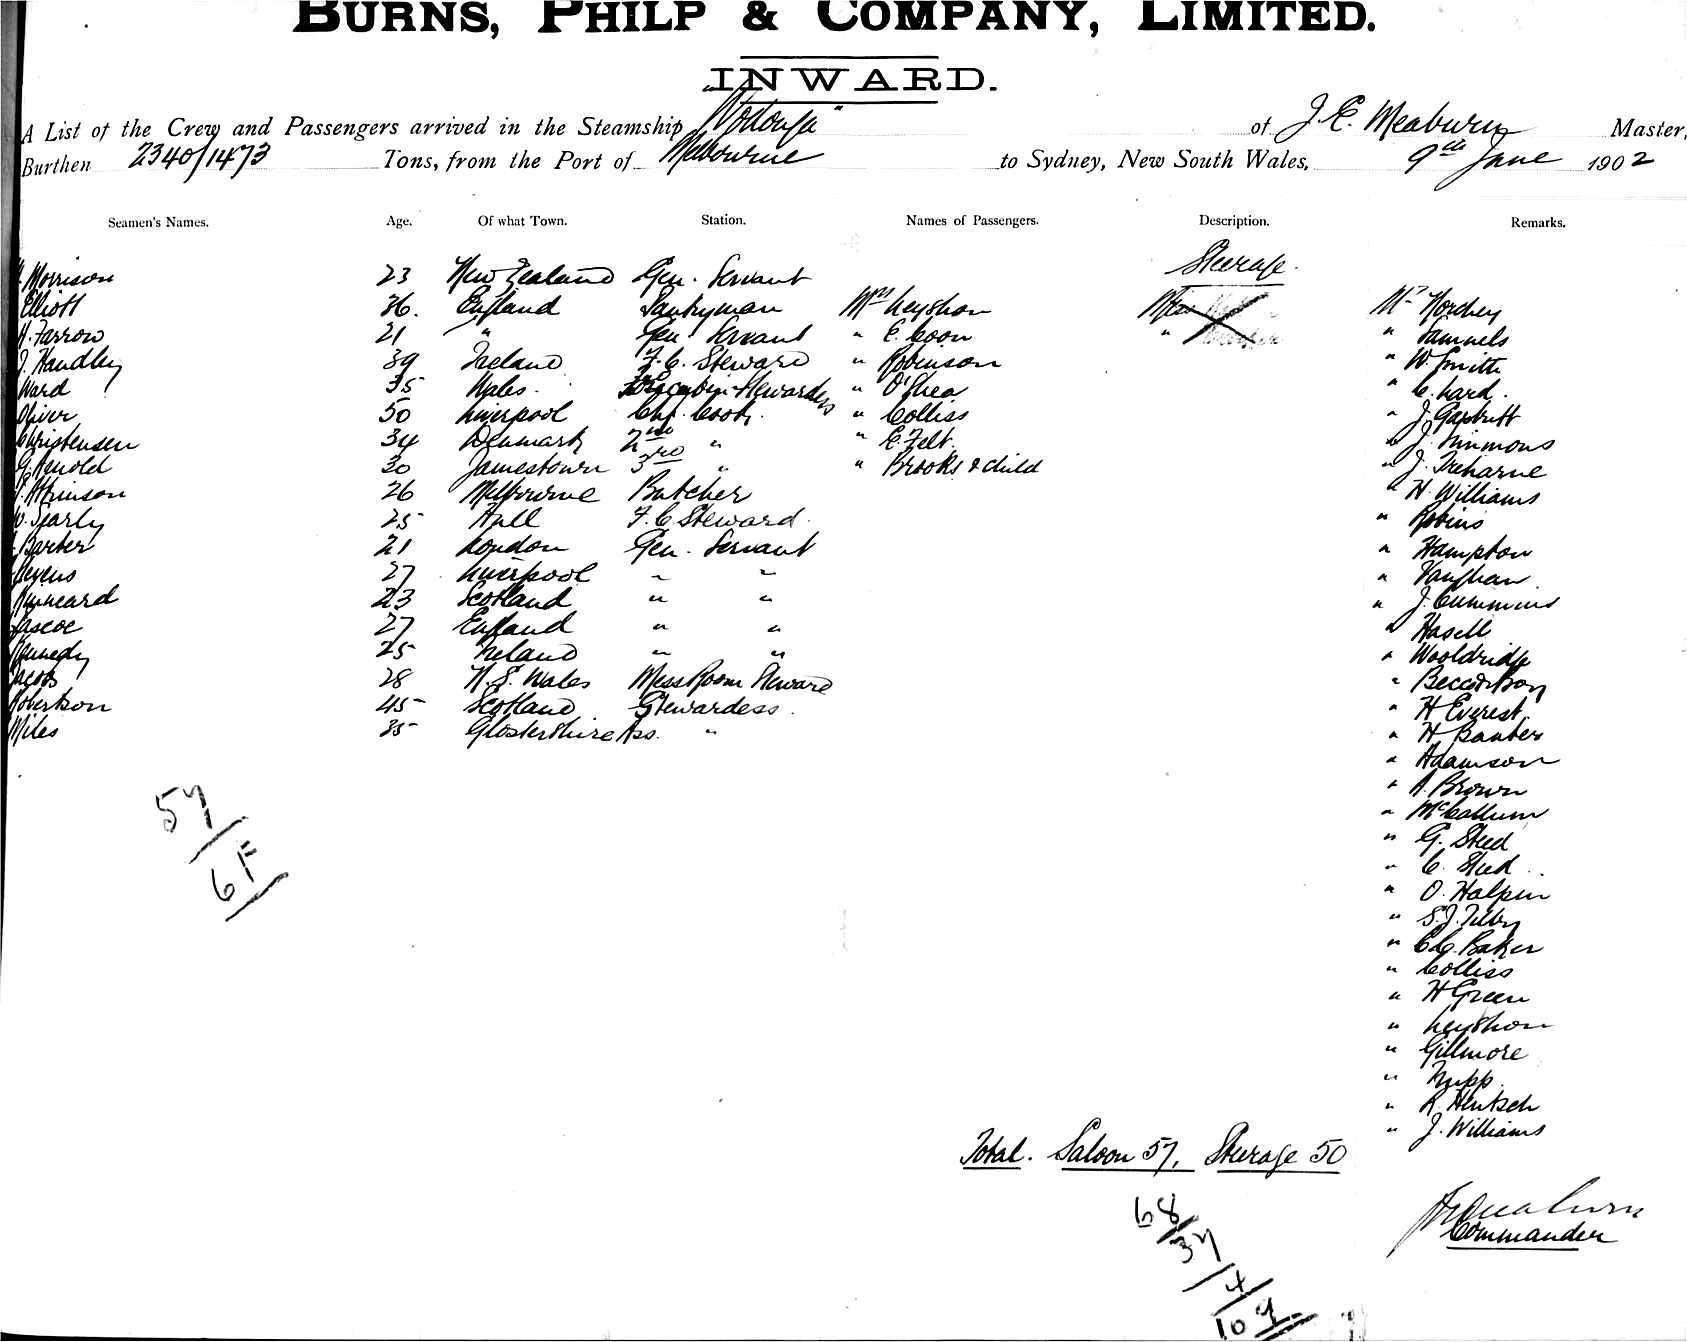 BURNS, PHILP & COMPANY, LIMITED.
INWARD.
A List of the Crew and Passengers arrived in the Steamship "Wodonga" of J. E. Meaburn Master,
Burthen 2340/1473 Tons, from the Port of Melbourne to Sydney, New South Wales, 9th June 1902
Seamen's Names. Age. Of what Town. Station. Names of Passengers. Description. Remarks.
Steerage.
Morrison 23 New Zealand Gen. Servant
Elliott 36. England Pantryman Mrs Leyshon Mr Hordern
H. Farrow 21 " Gen. Servant " E. Coon " " Samuels
J. Handley 39 Ireland F. C. Steward " Robinson " W. Smith
Ward 35 Wales. " O'Shea " C. Lard.
Oliver 50 Liverpool Chf. Cook. " Colliss " J. Gartritt
Christensen 34 Denmark 2nd " " E. Felt. " J. Simmons
G. Arnold 30 Jamestown 3rd " " Brooks & child " J. Treharne
Atkinson 26 Melbourne Butcher " H. Williams
W. Searly 25 Hull F. C Steward. " Robins
Barber 21 London Gen. Servant " Hampton
27 Liverpool " " " Vaughan.
23 Scotland " " " J. Cummins
Pascoe 27 England " " " Hasell
Kennedy 25 Ireland " " " Wooldridge
Jacobs 28 N. S. Wales Mess Room Steward "
Robertson 45 Scotland Stewardess. " H Everest.
Miles 35 Glostershire Ass. " " H
" Adamson
" A. Brown
" McCallum
57/6F " G. Steed
" C. Steed
" O. Halpin
" S. J. Tilby
" C. C. Baker
" Colliss
" H Green
" Leyshon
" Gillmore
" Nupp.
" R. Hentsch
" J. Williams
Total. Saloon 57, Steerage 50
68/37/4/109
Commander